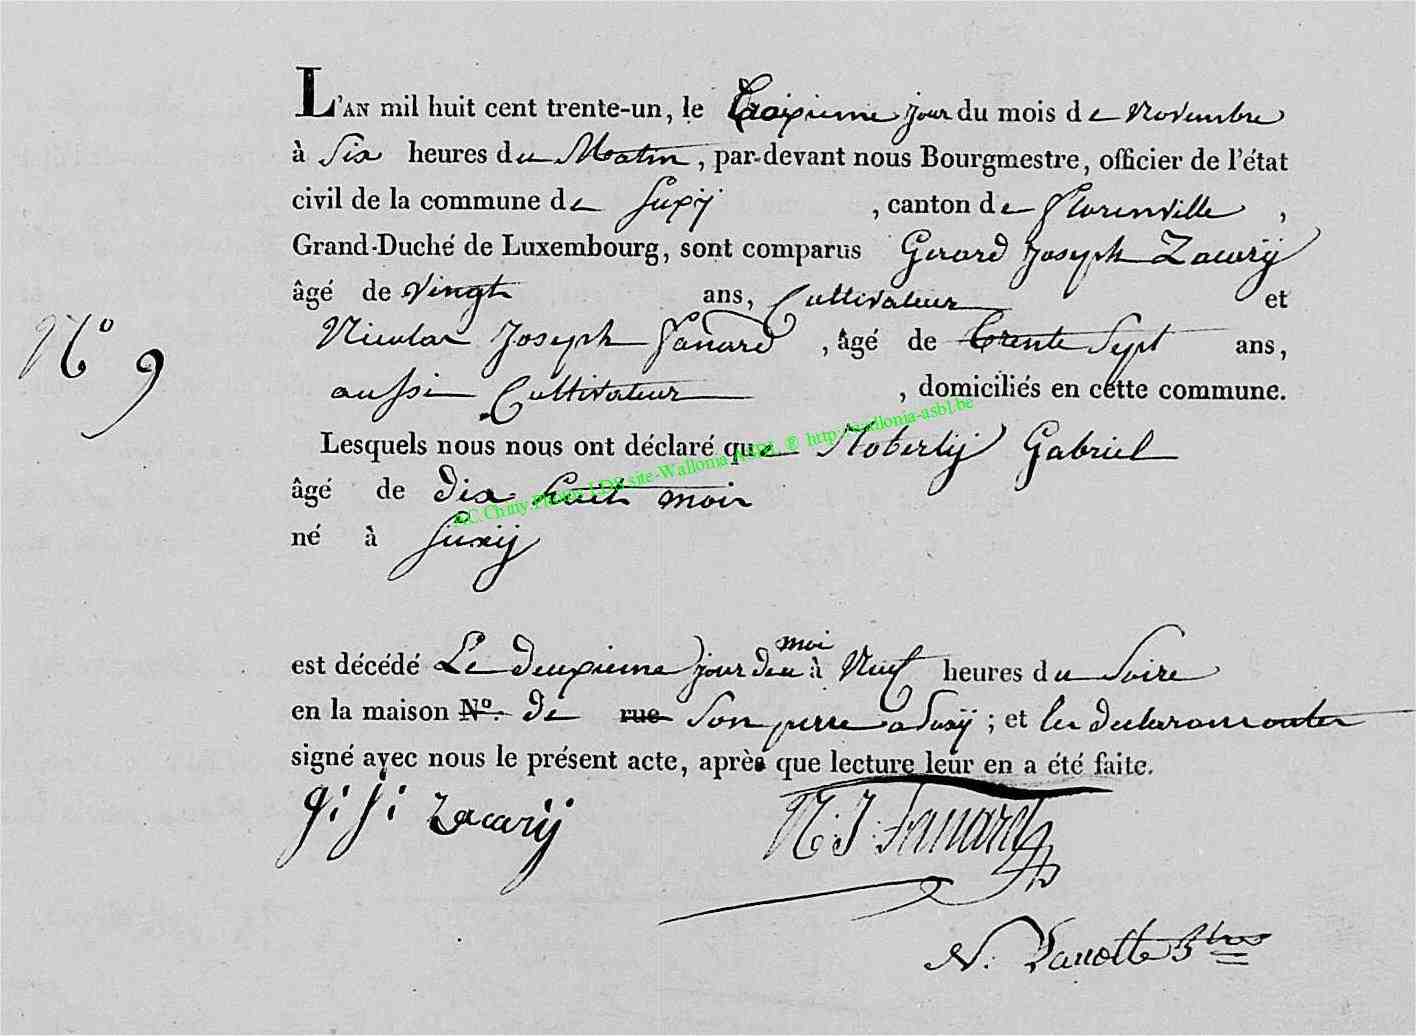 L'AN mil huit cent trente-un, le troixieme jour du mois de Novembre
à Six heures du Matin, par-devant nous Bourgmestre, officier de l'état
civil de la commune de Suxÿ, canton de Florenville,
Grand-Duché de Luxembourg, sont comparus Gerard Joseph Zacarÿ
âgé de Vingt ans, Cultivateur et
N° 9
Nicolas Joseph Fanard, âgé de trente Sept ans,
aussi Cultivateur, domiciliés en cette commune.
Lesquels nous nous ont déclaré que Gabriel
R.C. Chiny.Photos LDS site-Wallonia ASBL ® http://wallonia-asbl.be
âgé de dix huit mois
né à Suxÿ
est décédé Le deuxieme jour du moi à Neuf heures du Soire
en la maison N°. de rue Son perre a Suxÿ; et les
signé avec nous le présent acte, après que lecture leur en a été faite.
G: J: Zacarÿ
N: J: Fanard
N.